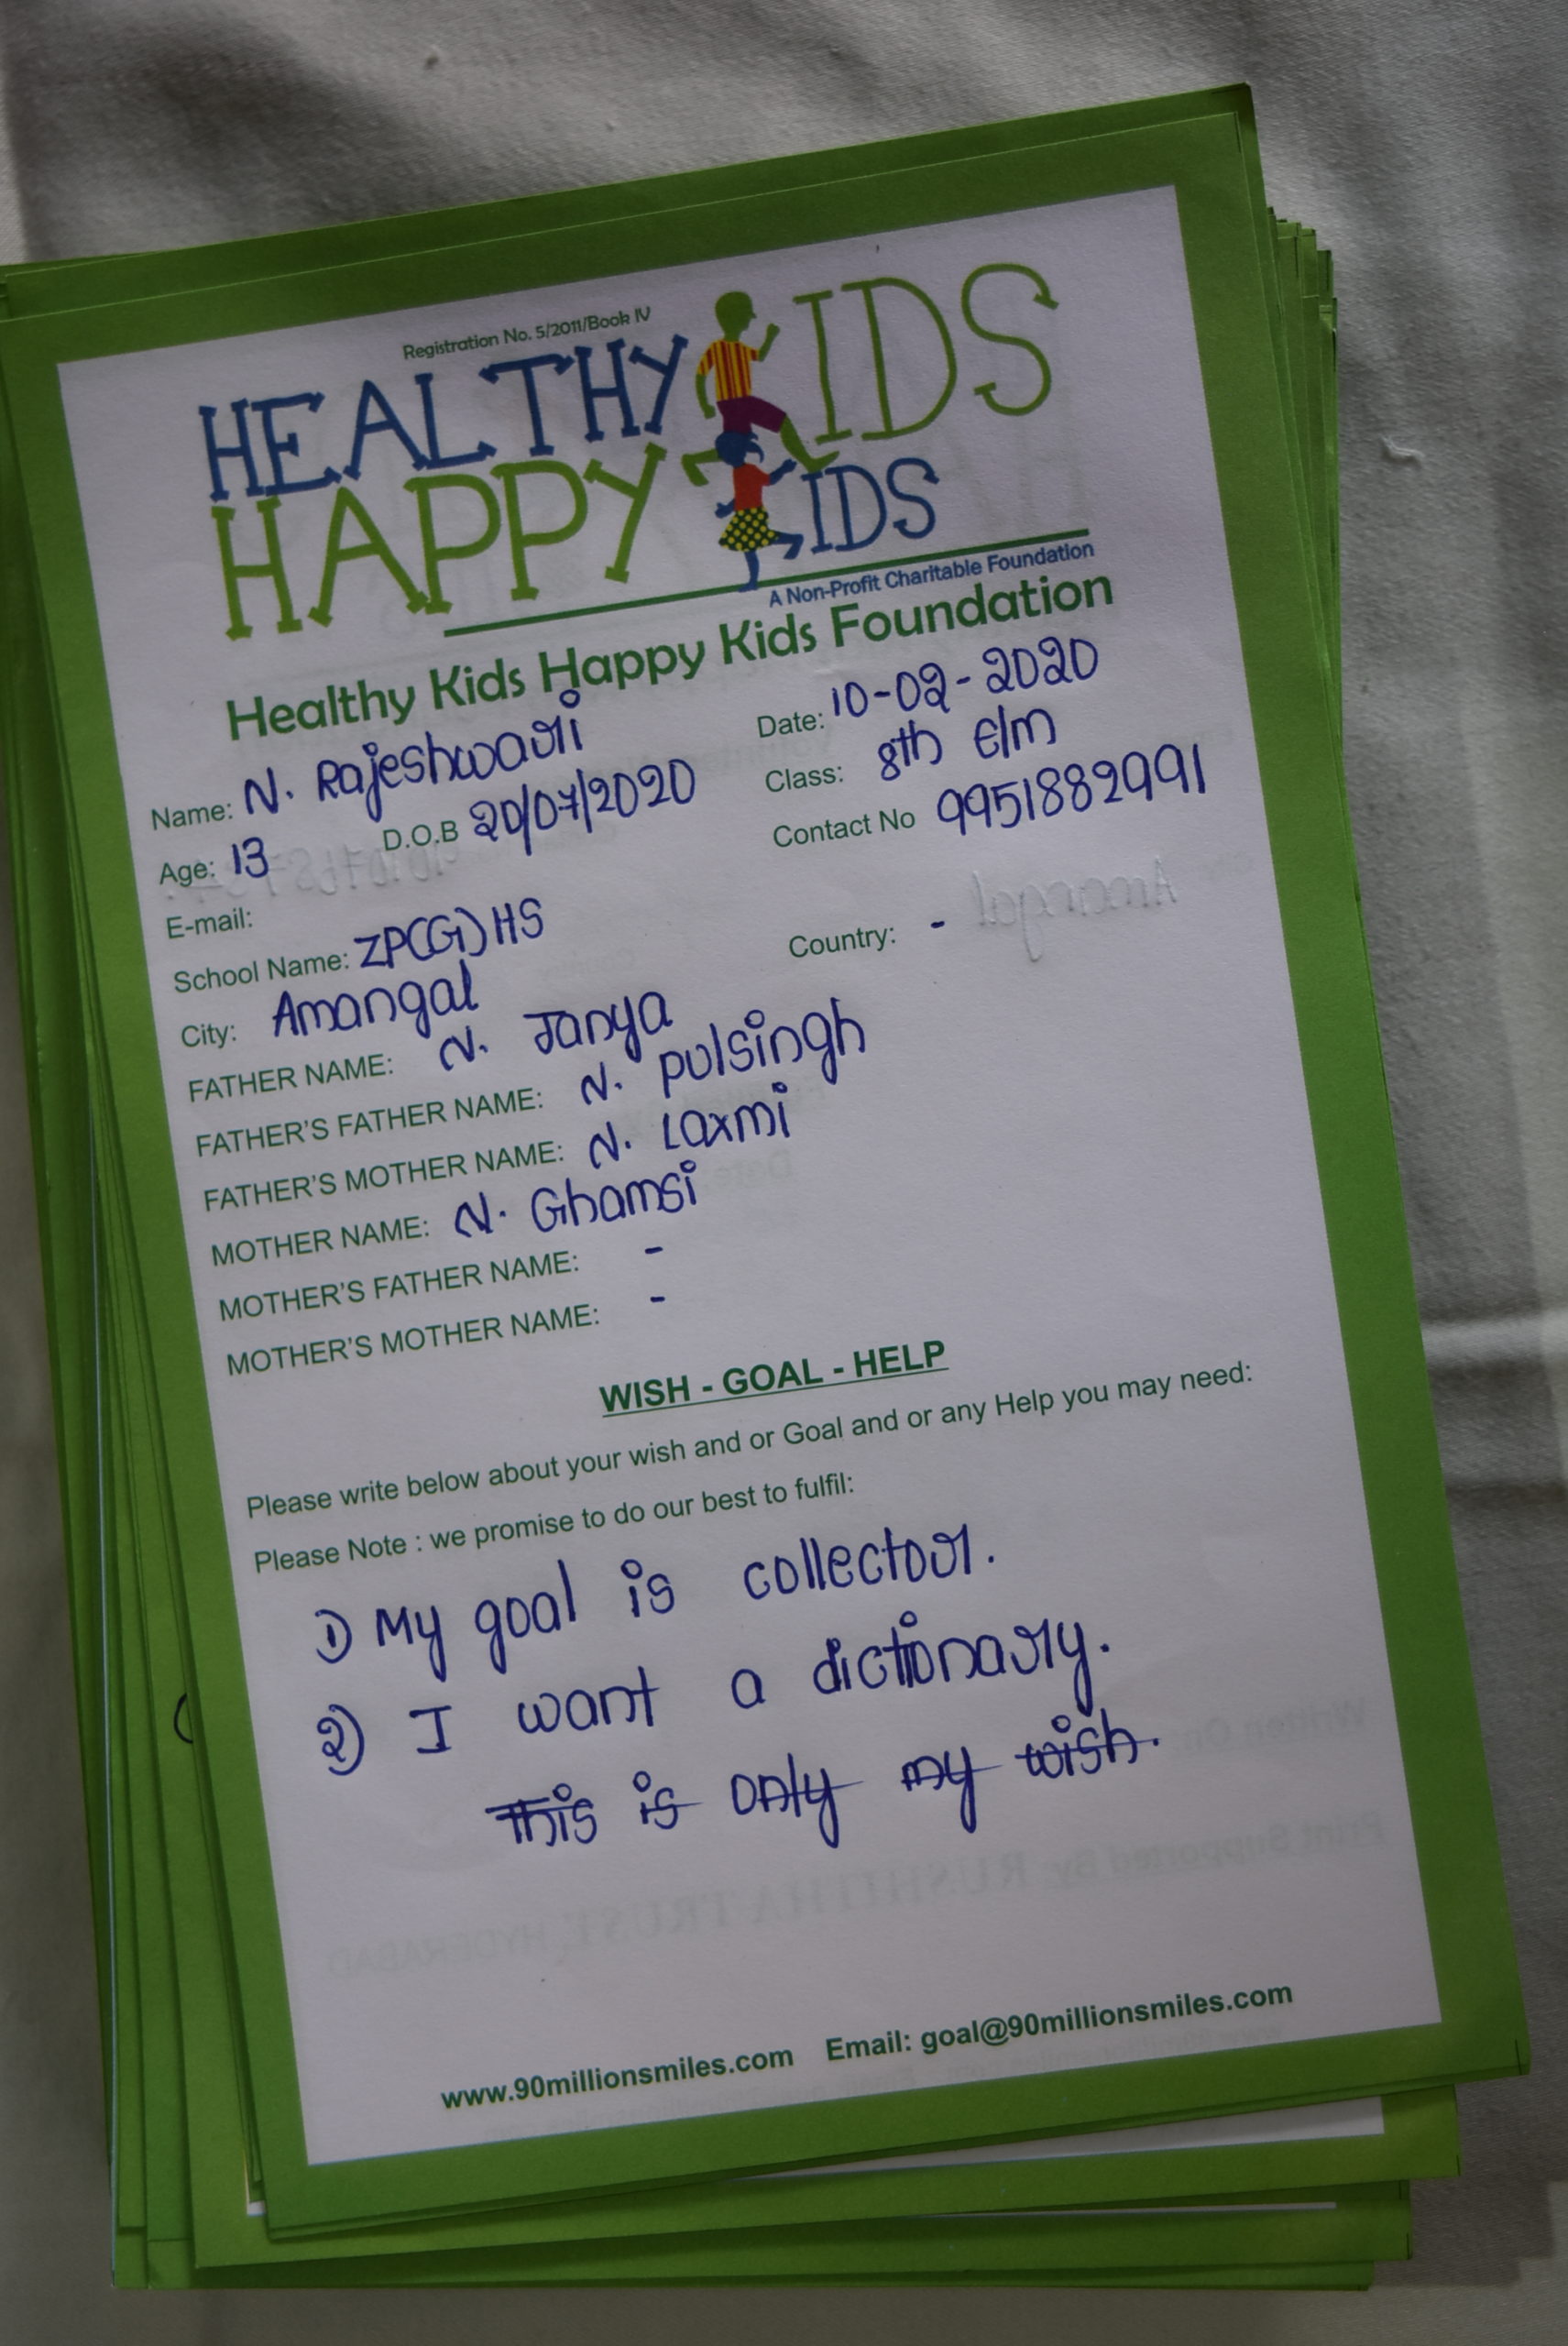 Registration No. 5/2011/Book IV
HEALTHY KIDS
HAPPY KIDS
A Non-Profit Charitable Foundation
Healthy Kids Happy Kids Foundation
Name: N. Rajeshwari Date: 10-02-2020
Age: 13 D.O.B 20/07/2020 Class: 8th E/m
E-mail: Contact No 9951882991
School Name: ZP(G)HS Country: -
City: Amangal
FATHER NAME: N. Janya
FATHER'S FATHER NAME: N. pulsingh
FATHER'S MOTHER NAME: N. Laxmi
MOTHER NAME: N. Ghamsi
MOTHER'S FATHER NAME: -
MOTHER'S MOTHER NAME: -
WISH - GOAL - HELP
Please write below about your wish and or Goal and or any Help you may need:
Please Note : we promise to do our best to fulfil:
1) My goal is collector.
2) I want a dictionary.
This is only my wish.
www.90millionsmiles.com Email: goal@90millionsmiles.com